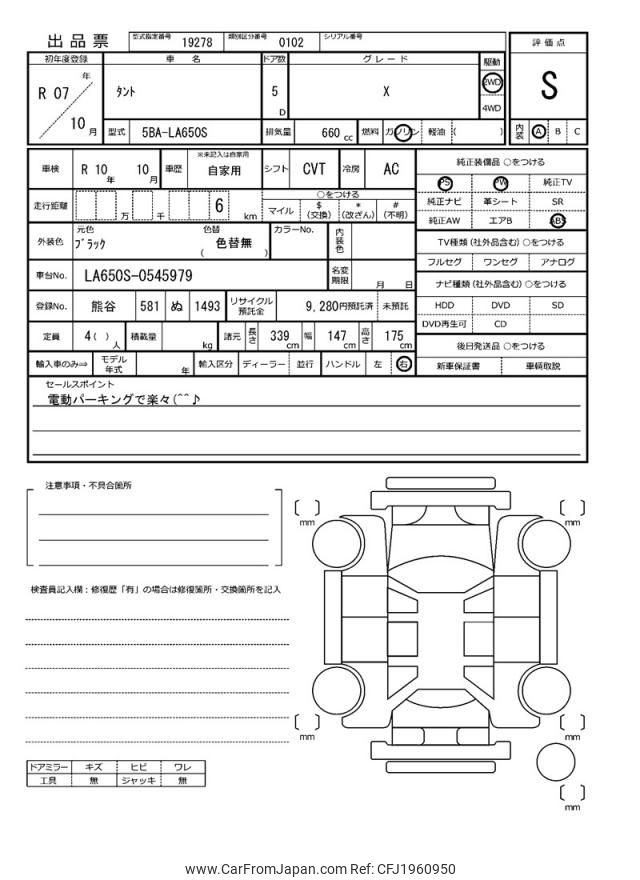 出品票 型式指定番号 19278 類別区分番号 0102 シリアル番号
初年度登録 車名 ドア数 グレード 駆動 評価点
R 07 年 10 月 タント 5 D X 2WD 4WD S
型式 5BA-LA650S 排気量 660 cc 燃料 ガソリン 軽油 ( ) 内装 A B C
車検 R 10 年 10 月 車歴 ※未記入は自家用 自家用 シフト CVT 冷房 AC 純正装備品 ○をつける
PS PW 純正TV
走行距離 万 千 6 km ○をつける 純正ナビ 革シート SR
マイル $ (交換) * (改ざん) # (不明) 純正AW エアB ABS
外装色 元色 ブラック 色替 ( 色替無 ) カラーNo. 内装色 TV種類 (社外品含む) ○をつける
フルセグ ワンセグ アナログ
車台No. LA650S-0545979 名変期限 月 日 ナビ種類 (社外品含む) ○をつける
登録No. 熊谷 581 ぬ 1493 リサイクル預託金 9,280円預託済 未預託 HDD DVD SD
DVD再生可 CD
定員 4( ) 人 積載量 kg 諸元 長さ 339 cm 幅 147 cm 高さ 175 cm 後日発送品 ○をつける
輸入車のみ⇒ モデル年式 年 輸入区分 ディーラー 並行 ハンドル 左 右 新車保証書 車輌取説
セールスポイント
電動パーキングで楽々(^^♪
注意事項・不具合箇所
検査員記入欄：修復歴「有」の場合は修復箇所・交換箇所を記入
[ ] mm [ ] mm
[ ] mm [ ] mm
[ ] mm
ドアミラー キズ ヒビ ワレ
工具 無 ジャッキ 無
www.CarFromJapan.com Ref: CFJ1960950